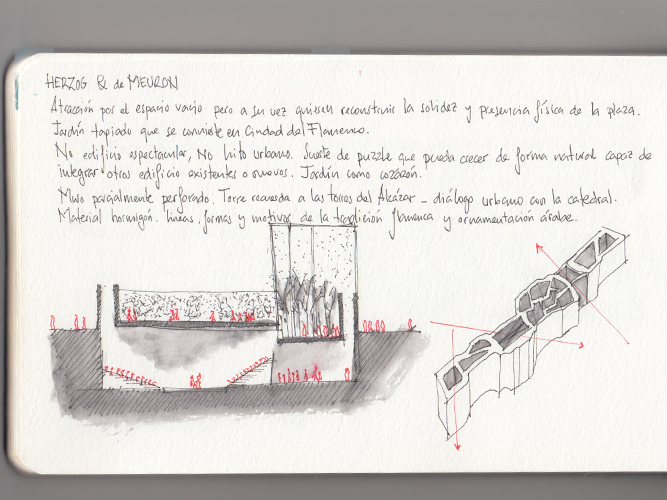 HERZOG & de MEURON
Atracción por el espacio vacío pero a su vez quieren reconstruir la solidez y presencia física de la plaza.
Jardín tapiado que se convierte en Ciudad del Flamenco.
No edificio espectacular, No hito urbano. Suerte de puzzle que pueda crecer de forma natural capaz de
integrar otros edificio existentes o nuevos. Jardín como corazón.
Muro parcialmente perforado. Torre recuerda a las torres del Alcázar - diálogo urbano con la catedral.
Material hormigón. líneas, formas y motivos de la tradición flamenca y ornamentación árabe.